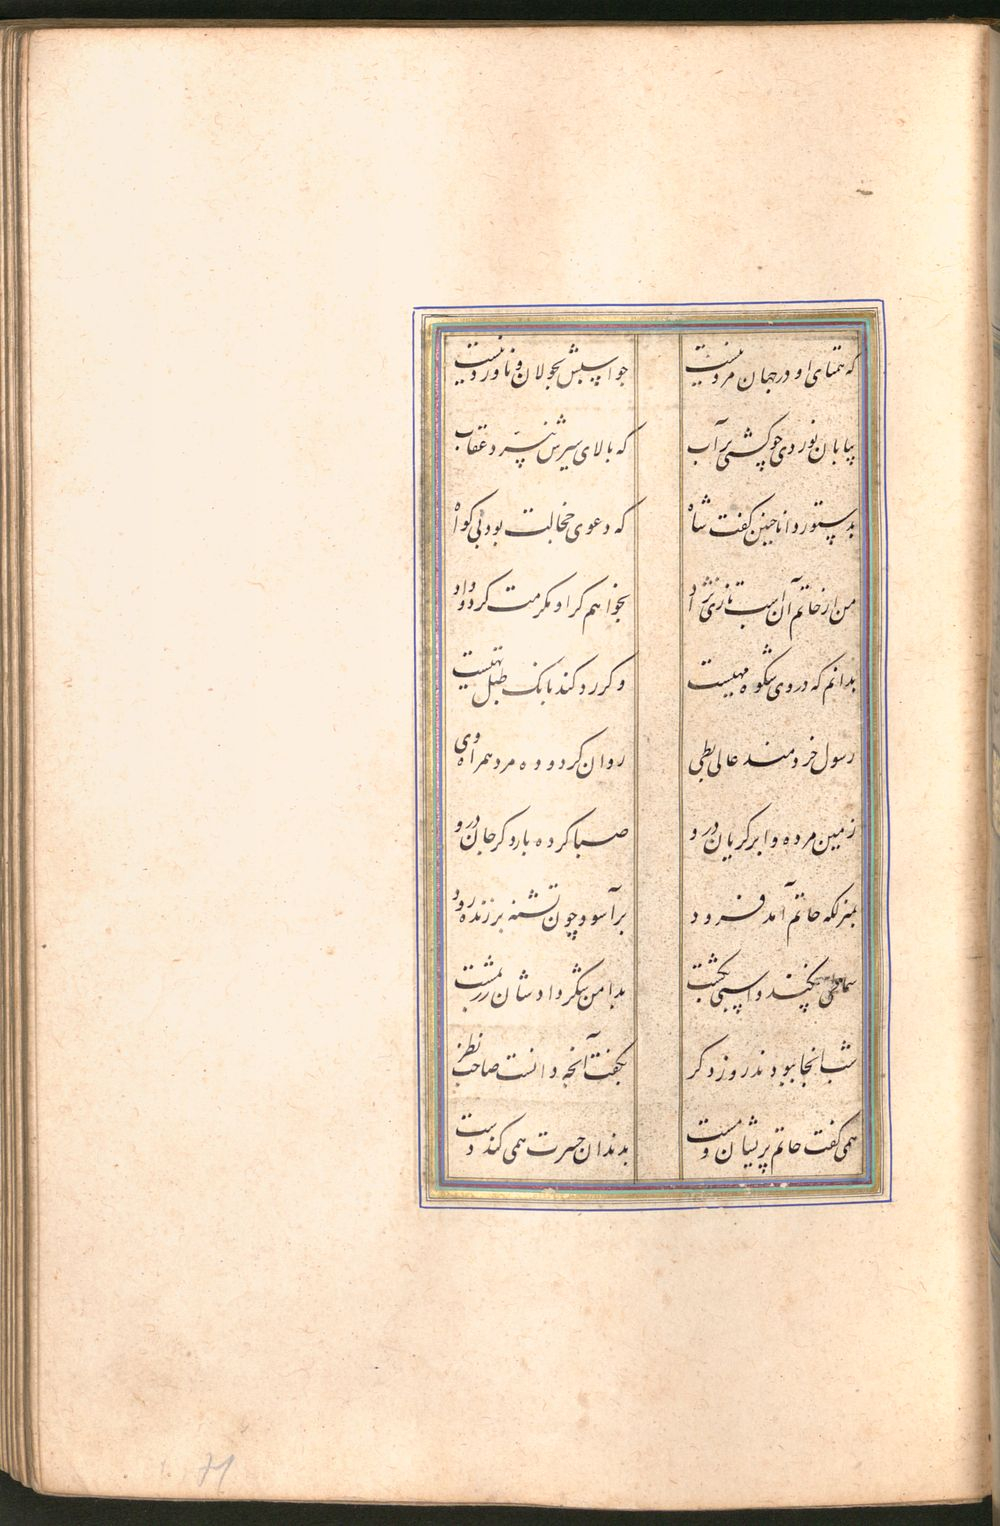 که همتای او در جهان مرد نیست چو اسپش بجولان و ناورد نیست
بیابان نوردی چو کشتی بر آب که بالای سیرش نپرد عقاب
بدستور دانا چنین گفت شاه که دعوی خجالت بود بی کواه
من از حاتم آن اسب تازی نژاد بخواهم کر او مکرمت کرد و داد
بدانم که در وی شکوه مهیست و کر رد کند بانک طبل تهیست
رسول خردمند عالی بطی روان کرد و ده مرد همراه وی
زمین مرده و ابر کریان درو صبا کرده بار دکر جان درو
بمنزلکه حاتم آمد فرود بر آسود چون تشنه بر زنده رود
سماطی بیفکند و اسپی بکشت بدامن شکر دادشان زر بمشت
شب آنجا ببودند روز دکر بکفت آنچه دانست صاحب نظر
همی کفت حاتم پریشان و مست بدندان حسرت همی کند دست